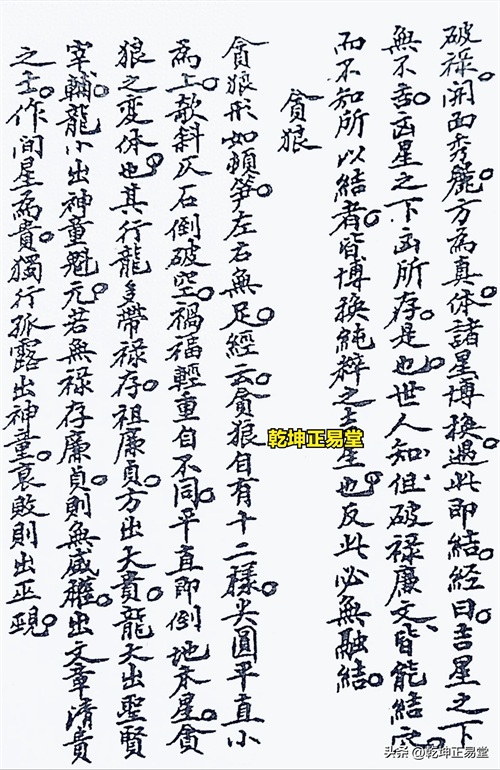 破祿。開面秀麗。方為真体。諸星博換。遇此即結。經曰。吉星之下
無不吉。凶星之下凶所存。是也。世人知。但破祿廉文、皆能結穴。
而不知所以結者。皆博換純粹之星也。反此必無融結。
貪狼
貪狼形如頓笋。左右無足。經云。貪狼自有十二樣。尖圓平直小
為上。欹斜仄石倒破空。禍福輕重自不同。平直即倒地木星。貪
狼之変体也。其行龍多帶祿存。祖廉貞。方出大貴。龍大出聖賢
宰輔。龍小出神童魁元。若無祿存廉貞。則無威權。出文章清貴
之士。作間星為貴。獨行孤露出神童。衰敗則出巫覡。
乾坤正易堂
头条 @乾坤正易堂